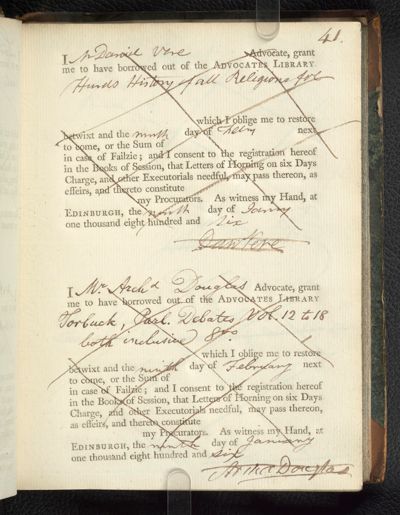 41.
I Mr Daniel Vere Advocate, grant
me to have borrowed out of the ADVOCATES LIBRARY
Hurds History of all Religions fol
which I oblige me to restore
betwixt and the ninth day of Feby next
to come, or the Sum of
in case of Failzie; and I consent to the registration hereof
in the Books of Session, that Letters of Horning on six Days
Charge, and other Executorials needful, may pass thereon, as
effeirs, and thereto constitute
my Procurators. As witness my Hand, at
EDINBURGH, the ninth day of Janry
one thousand eight hundred and Six
Dan Vere
I Mr Archd Douglas Advocate, grant
me to have borrowed out of the ADVOCATES LIBRARY
Torbuck, Parl. Debates Vol. 12 to 18
both inclusive 8vo.
which I oblige me to restore
betwixt and the ninth day of February next
to come, or the Sum of
in case of Failzie; and I consent to the registration hereof
in the Books of Session, that Letters of Horning on six Days
Charge, and other Executorials needful, may pass thereon,
as effeirs, and thereto constitute
my Procurators. As witness my Hand, at
EDINBURGH, the ninth day of January
one thousand eight hundred and six
Archd Douglas